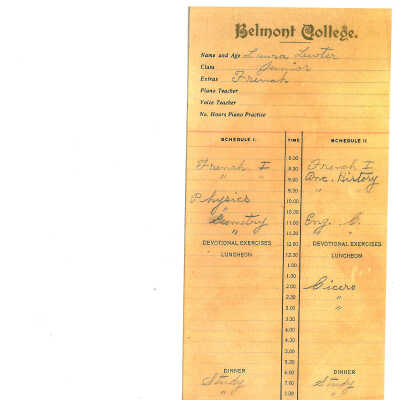 Belmont College.
Name and Age Laura Lester
Class Junior
Extras French
Piano Teacher
Voice Teacher
No. Hours Piano Practice
SCHEDULE I. TIME SCHEDULE II
8.00
French I 8.30 French I
" " 9.00 Anc. History
9.30 "
Physics 10.00
" 10.30
Geometry 11.00 Eng. C.
" 11.30 " "
DEVOTIONAL EXERCISES 12.00 DEVOTIONAL EXERCISES
LUNCHEON 12.30 LUNCHEON
1.00
2.00 Cicero
2.30 "
3.00 "
3.30
4.00
4.30
5.00
5.30
DINNER 6.00 DINNER
Study 6.30 Study
" 7.00 "